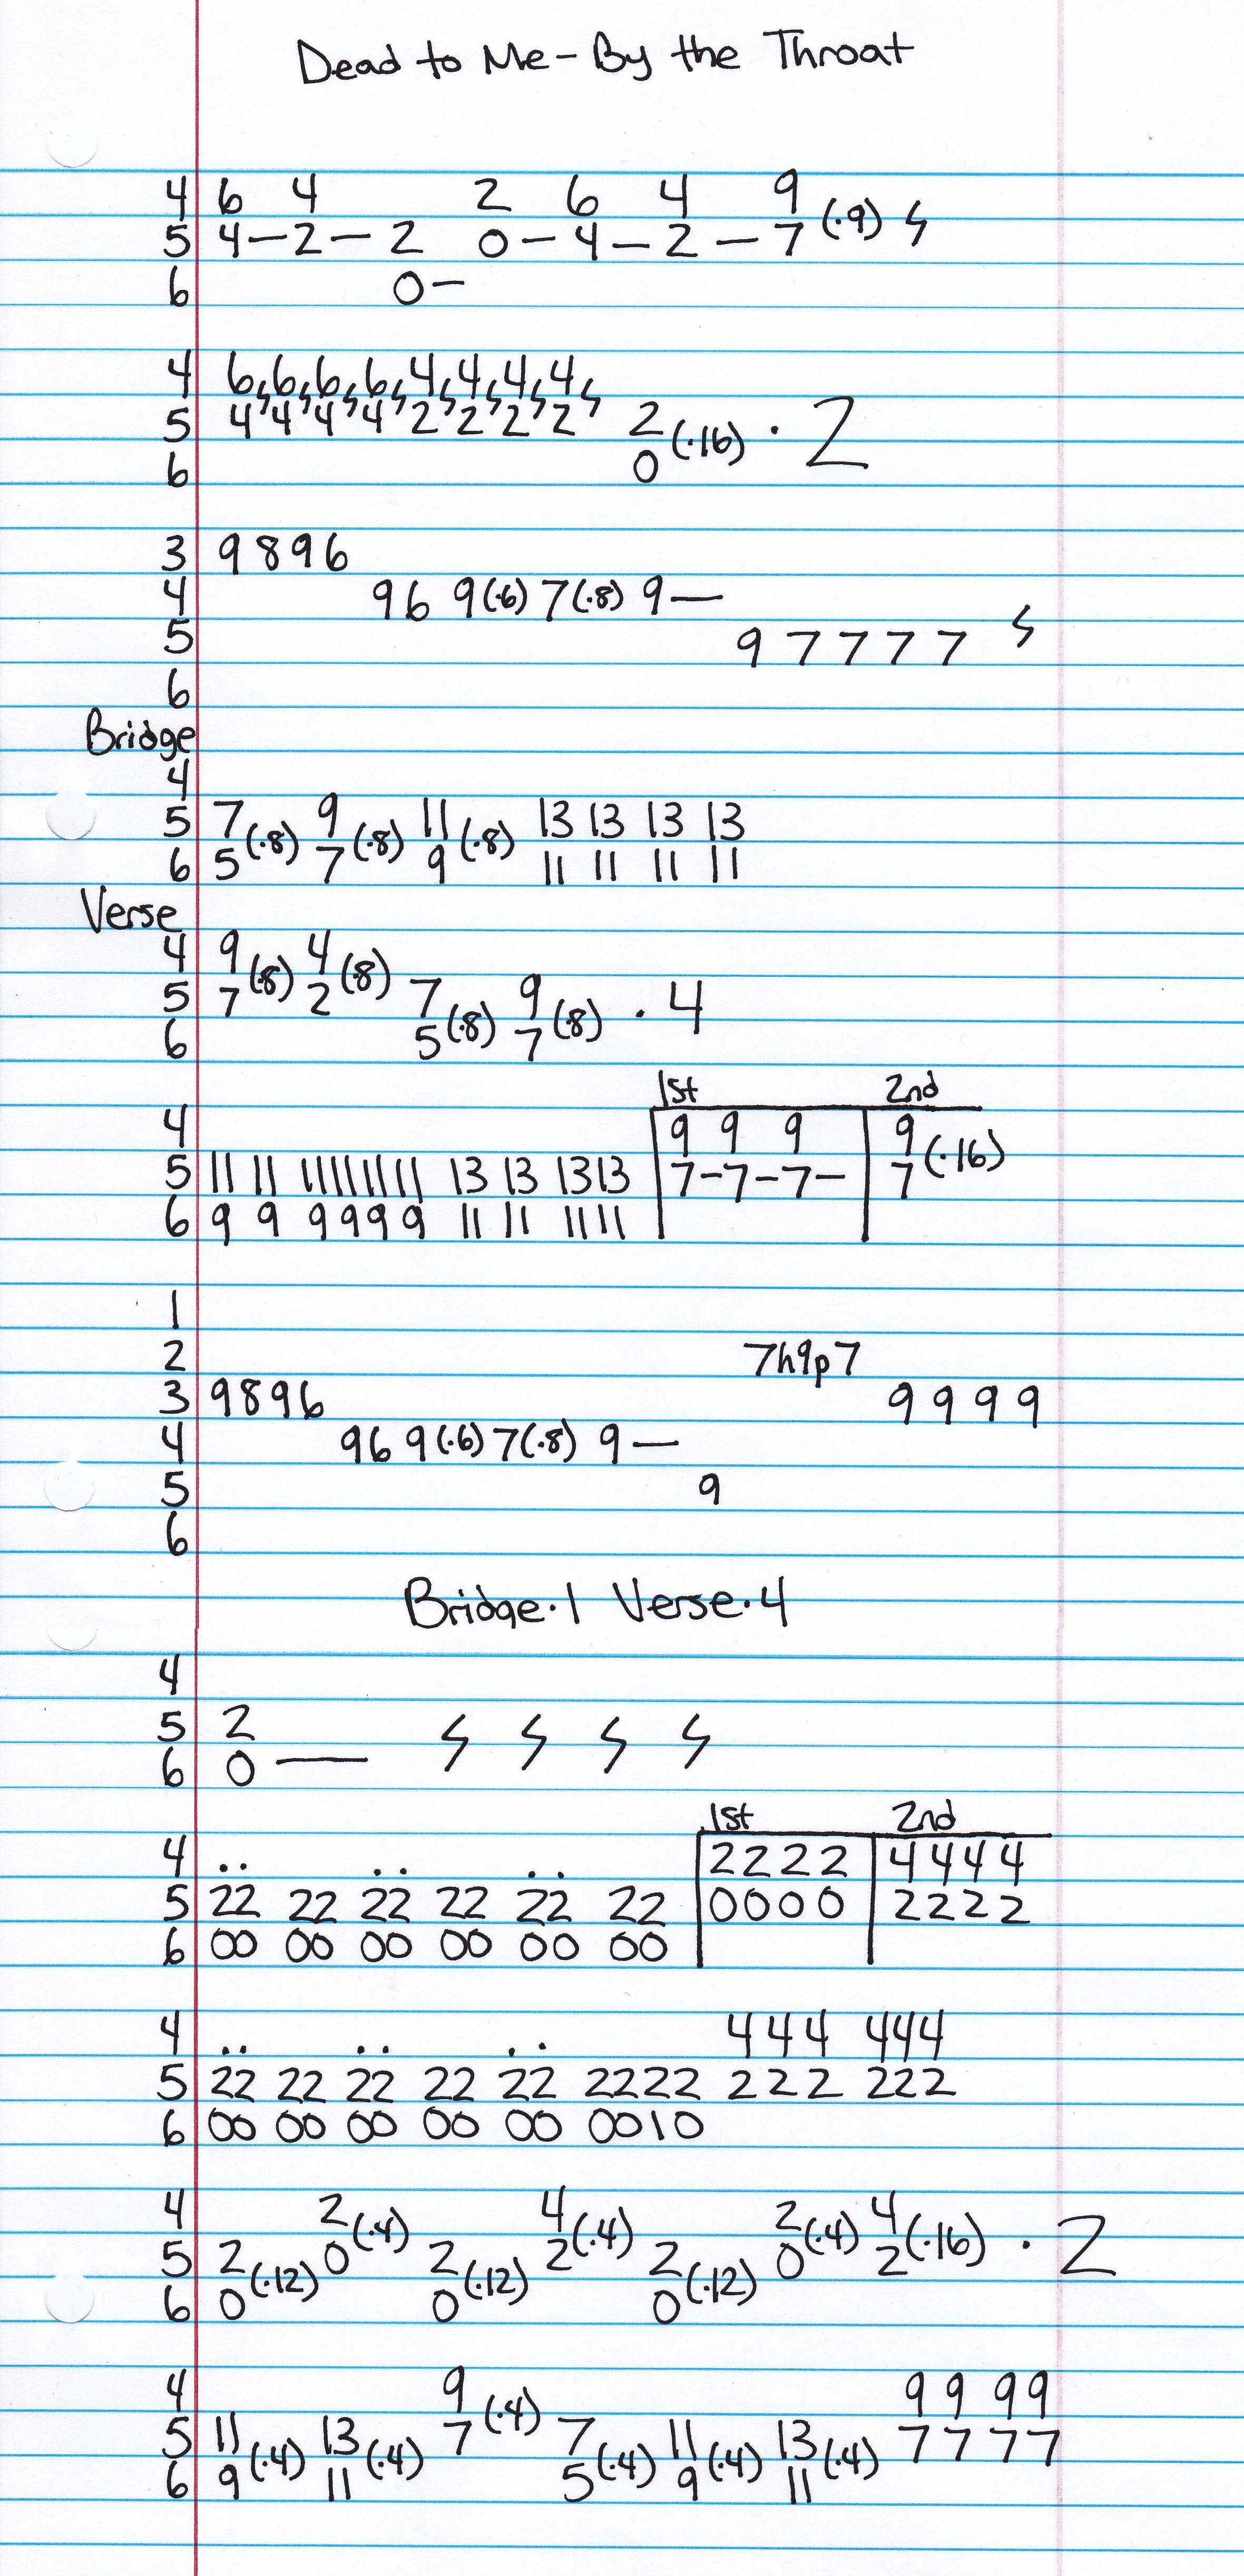 Dead to Me - By the Throat
4 6 4 2 6 4 9
5 4 — 2 — 2 0 — 4 — 2 — 7 (·9) ϟ
6 0 —
4 6 ϟ 6 ϟ 6 ϟ 6 ϟ 4 ϟ 4 ϟ 4 ϟ 4 ϟ
5 4 4 4 4 2 2 2 2 2 (·16) · 2
6 0
3 9 8 9 6
4 9 6 9 (·6) 7 (·8) 9 —
5 9 7 7 7 7 ϟ
6
Bridge
4
5 7 (·8) 9 (·8) 11 (·8) 13 13 13 13
6 5 7 9 11 11 11 11
Verse
4 9 (·8) 4 (·8)
5 7 2 7 (·8) 9 (·8) · 4
6 5 7
1st 2nd
4 9 9 9 9 (·16)
5 11 11 11 11 11 11 13 13 13 13 7 – 7 – 7 – 7
6 9 9 9 9 9 9 11 11 11 11
1
2 7h9p7
3 9 8 9 6 9 9 9 9
4 9 6 9 (·6) 7 (·8) 9 —
5 9
6
Bridge · 1 Verse · 4
4
5 2
6 0 — ϟ ϟ ϟ ϟ
1st 2nd
4 .. .. .. 2 2 2 2 4 4 4 4
5 22 22 22 22 22 22 0 0 0 0 2 2 2 2
6 00 00 00 00 00 00
4 .. .. .. 4 4 4 4 4 4
5 22 22 22 22 22 2222 2 2 2 2 2 2
6 00 00 00 00 00 0010
4 2 (·4) 4 (·4) 2 (·4) 4 (·16) · 2
5 2 (·12) 0 2 (·12) 2 2 (·12) 0 2
6 0 0 0
4 9 (·4) 9 9 9 9
5 11 (·4) 13 (·4) 7 7 (·4) 11 (·4) 13 (·4) 7 7 7 7
6 9 11 5 9 11